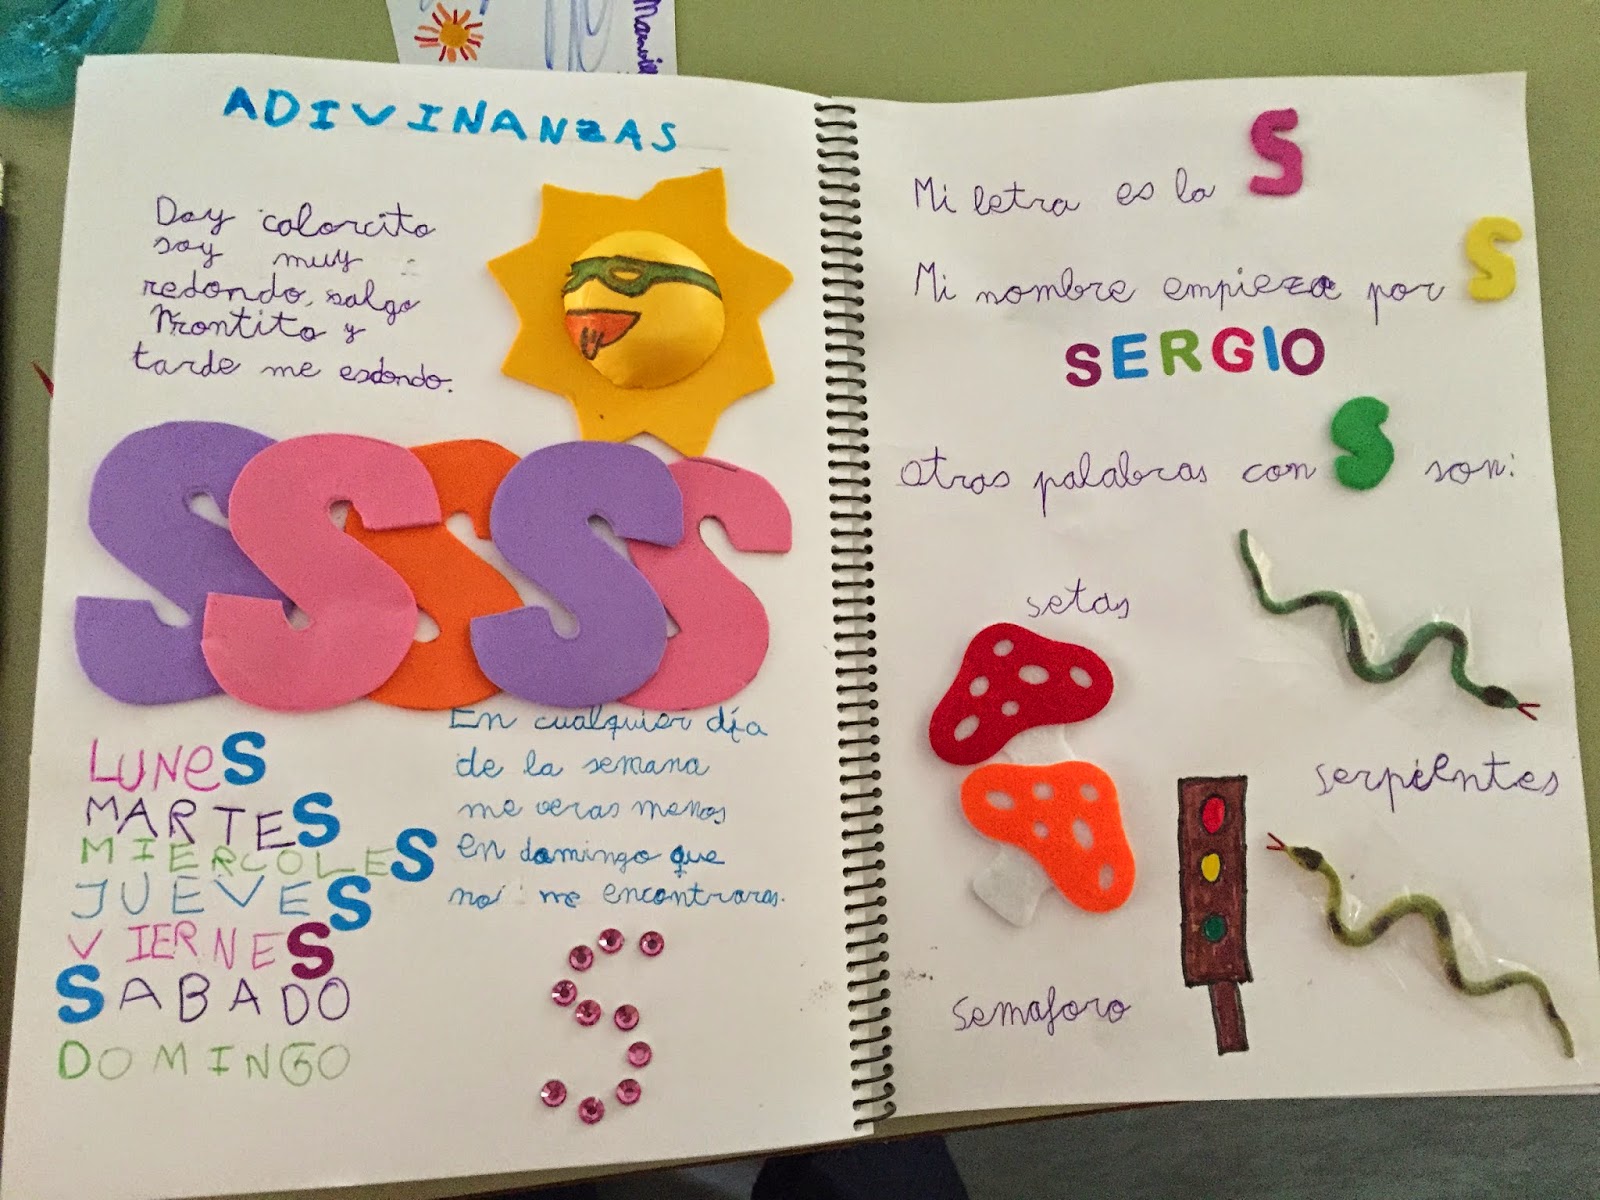 ADIVINANZAS
Doy calorcito
soy muy
redondo, salgo
Prontito y
tarde me escondo.
SSSSS
LUNES
MARTES
MIERCOLES
JUEVES
VIERNES
SABADO
DOMINGO
En cualquier día
de la semana
me veras menos
en domingo que
no me encontraras.
S
Mi letra es la S
Mi nombre empieza por S
SERGIO
otras palabras con S son:
setas
serpientes
semaforo